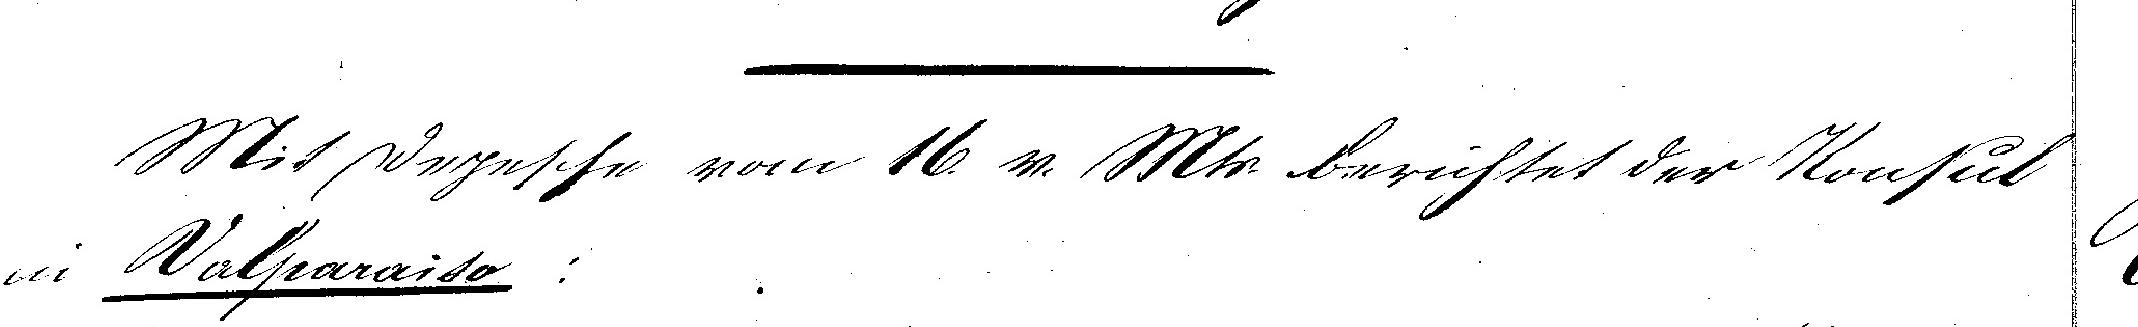 Mit Depesche vom 16. v. Mts. berichtet der Konsul
in Valparaiso :